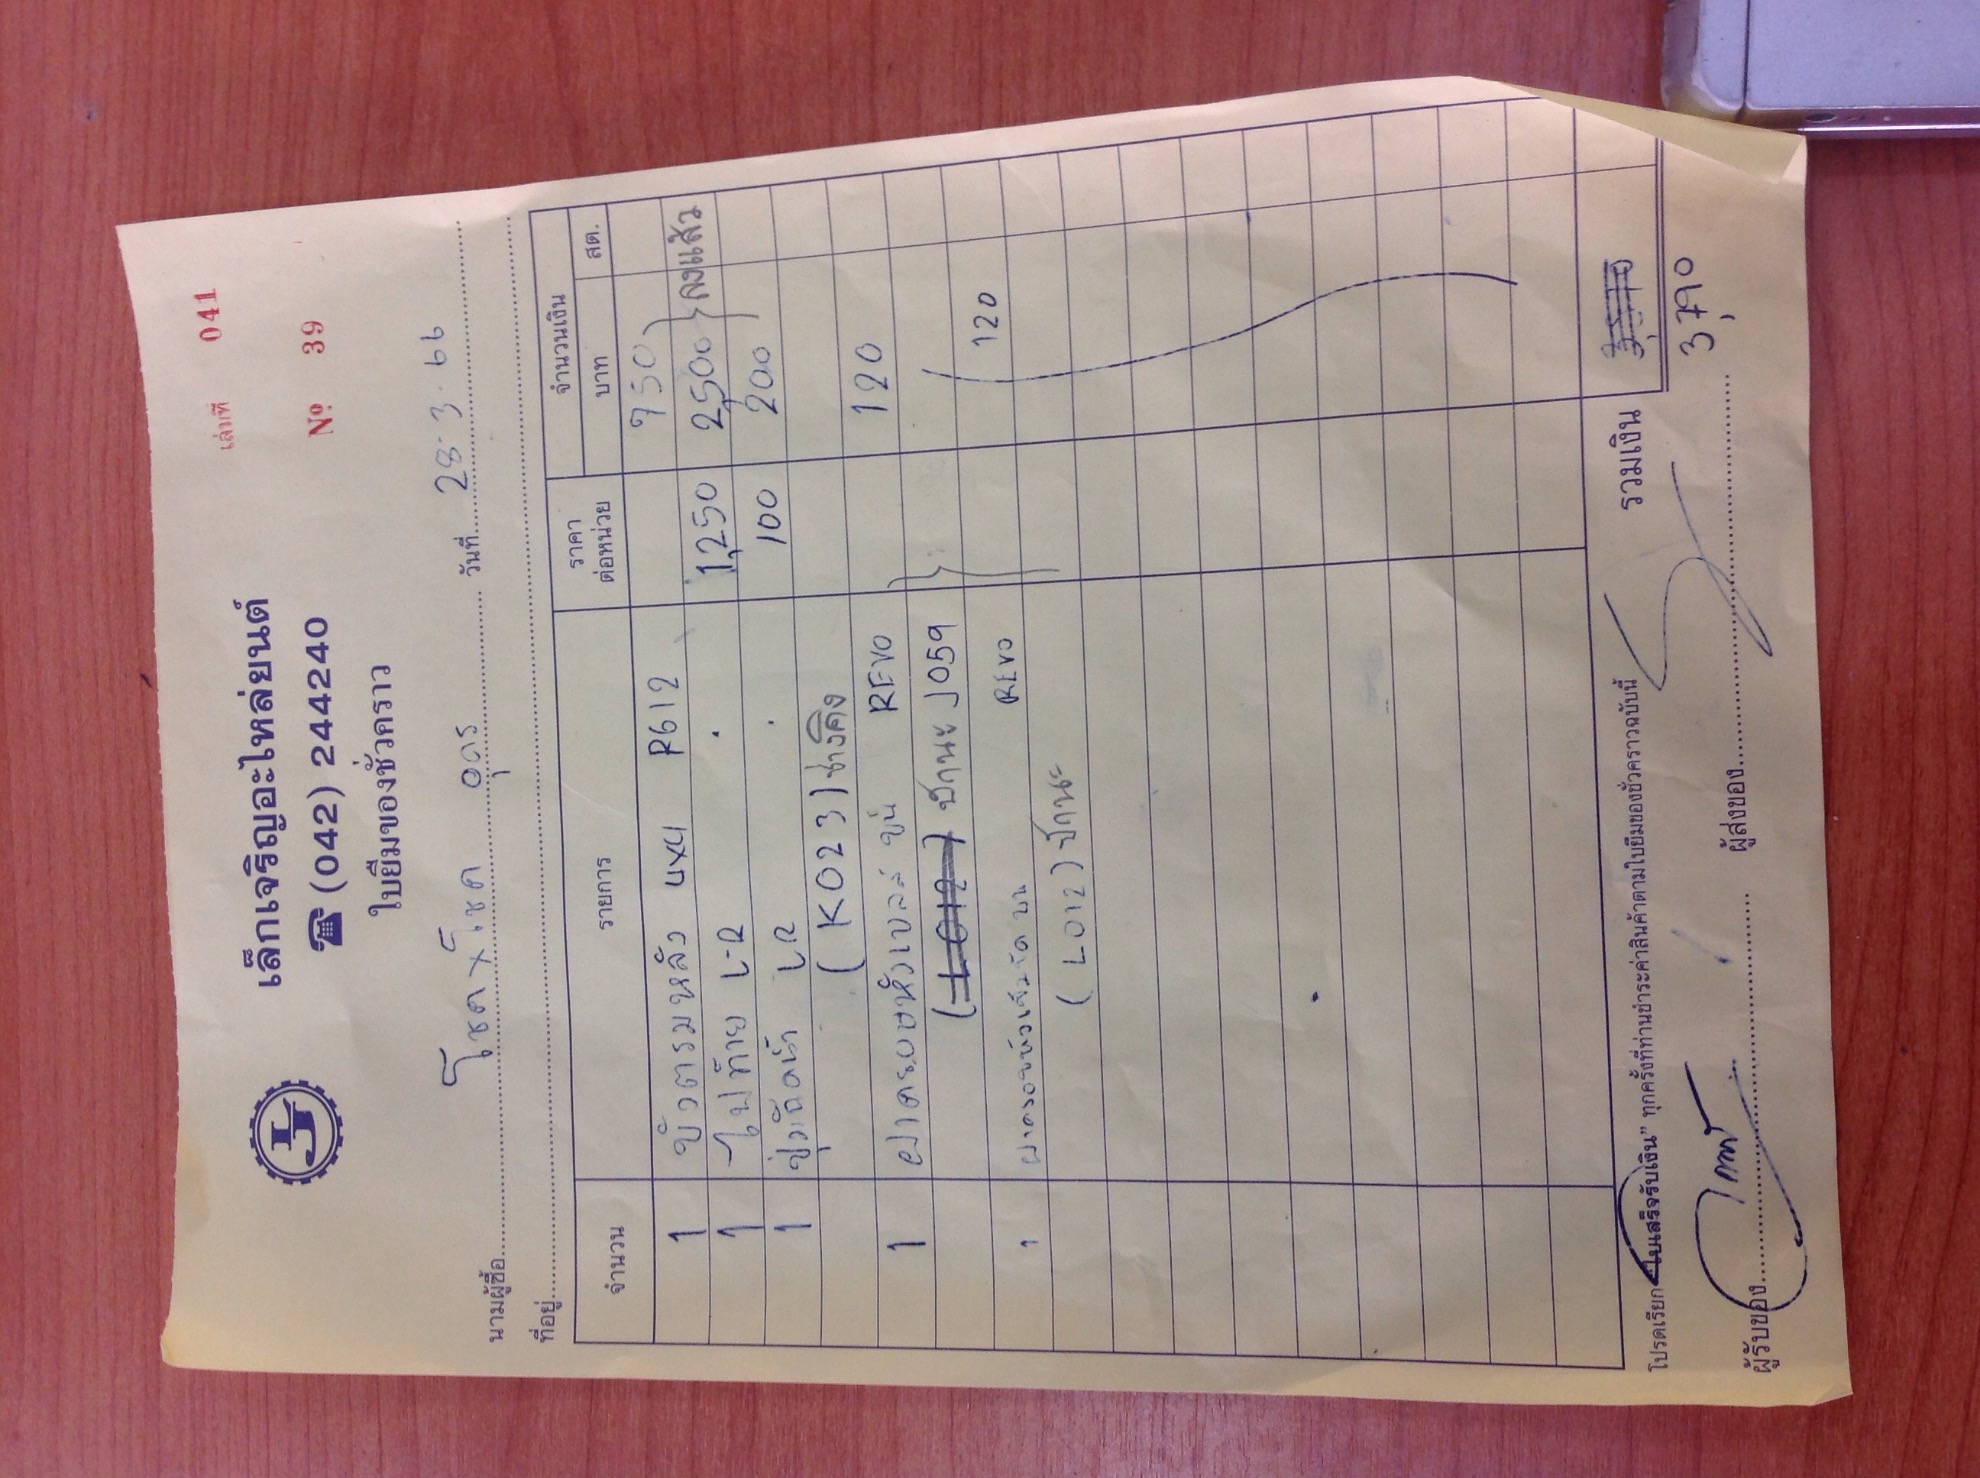 เล่มที่ 041
เล็กเจริญอะไหล่ยนต์
☎ (042) 244240
Nº 39
ใบยืมของชั่วคราว
นามผู้ซื้อ โชค x โชค อุดร วันที่ 28-3-66
ที่อยู่
จำนวน รายการ ราคาต่อหน่วย จำนวนเงิน
บาท สต.
1 บัวตรมหลัง 4x4 P612 950
1 ไฟท้าย L-R 1,250 2,500 ลงแล้ว
1 L R 100 200
(K023) ช่างคิง
1 ฝาครอบหัวเบลล์ REVO 120
(L012) ชำนะ J059
1 ฝาครอบหัว บน REVO 120
(L012) ชำนะ
รวมเงิน
3,770
โปรดเรียก "ใบเสร็จรับเงิน" ทุกครั้งที่ท่านชำระค่าสินค้าตามใบยืมของชั่วคราวฉบับนี้
ผู้รับของ ผู้ส่งของ